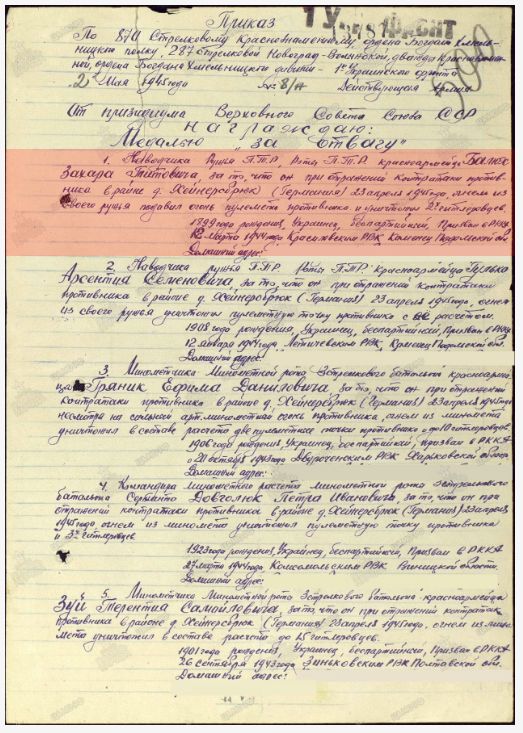 Приказ
По 870 Стрелковому Краснознаменному ордена Богдан Хмель-
ницкого полку 287 Стрелковой Новоград-Волынской, дважды Краснознамен-
ной, ордена Богдана Хмельницкого дивизии - 1го Украинского фронта
"2" Мая 1945 года № 8/н Действующая Армия
От президиума Верховного Совета Союза ССР
награждаю:
Медалью "За Отвагу"
1. Наводчика Ружья П.Т.Р., Роты П.Т.Р. красноармейца
Захара Титовича, за то, что он при отражении контратаки против-
ника в районе д. Хейнерсбрюк (Германия) 23 апреля 1945 года, огнем из
своего ружья подавил огонь пулемета противника и уничтожил 2х гитлеровцев.
1899 года рождения, Украинец, беспартийный, Призван в РККА
12 Марта 1944 года Красиловским РВК Каменец Подольской обл.
Домашний адрес:
2. Наводчика ружья П.Т.Р. Роты П.Т.Р. Красноармейца
Арсентия Семеновича, за то, что он при отражении контратаки
противника в районе д. Хейнерсбрюк (Германия) 23 апреля 1945 года, огнем
из своего ружья уничтожил пулеметную точку противника с её расчетом.
1908 года рождения, Украинец, беспартийный, Призван в РККА
12 января 1944 года Летичевским РВК, Каменец Подольской обл.
Домашний адрес:
3. Минометчика Минометной роты стрелкового батальона красноармей-
ца Граник Ефима Даниловича, за то, что он при отражении
контратаки противника в районе д. Хейнерсбрюк (Германия) 23 апреля 1945 года
несмотря на сильный арт. минометный огонь противника, огнем из миномета
уничтожил в составе расчета две пулеметные точки противника и до 10 гитлеровцев.
1906 года рождения, Украинец, беспартийный, призван в РККА
20 октября 1943 года Двуреченским РВК Харьковской области
Домашний адрес:
4. Командира минометного расчета минометной роты стрелкового
батальона Сержанта Довголюк Петра Ивановича, за то, что он при
отражении контратаки противника в районе д. Хейнерсбрюк (Германия) 23 апреля
1945 года огнем из миномета уничтожил пулеметную точку противника
и 3х гитлеровцев
1923 года рождения, Украинец, беспартийный, Призван в РККА
27 марта 1944 года Комсомольским РВК Винницкой области.
Домашний адрес:
5. Минометчика Минометной роты стрелкового батальона красноармейца
Зуй Терентия Самойловича, за то, что он при отражении контратаки
противника в районе д. Хейнерсбрюк (Германия) 23 апреля 1945 года, огнем из мино-
мета уничтожил в составе расчета до 15 гитлеровцев.
1901 года рождения, Украинец, беспартийный, Призван в РККА
26 сентября 1943 года Зиньковским РВК Полтавской обл.
Домашний адрес: